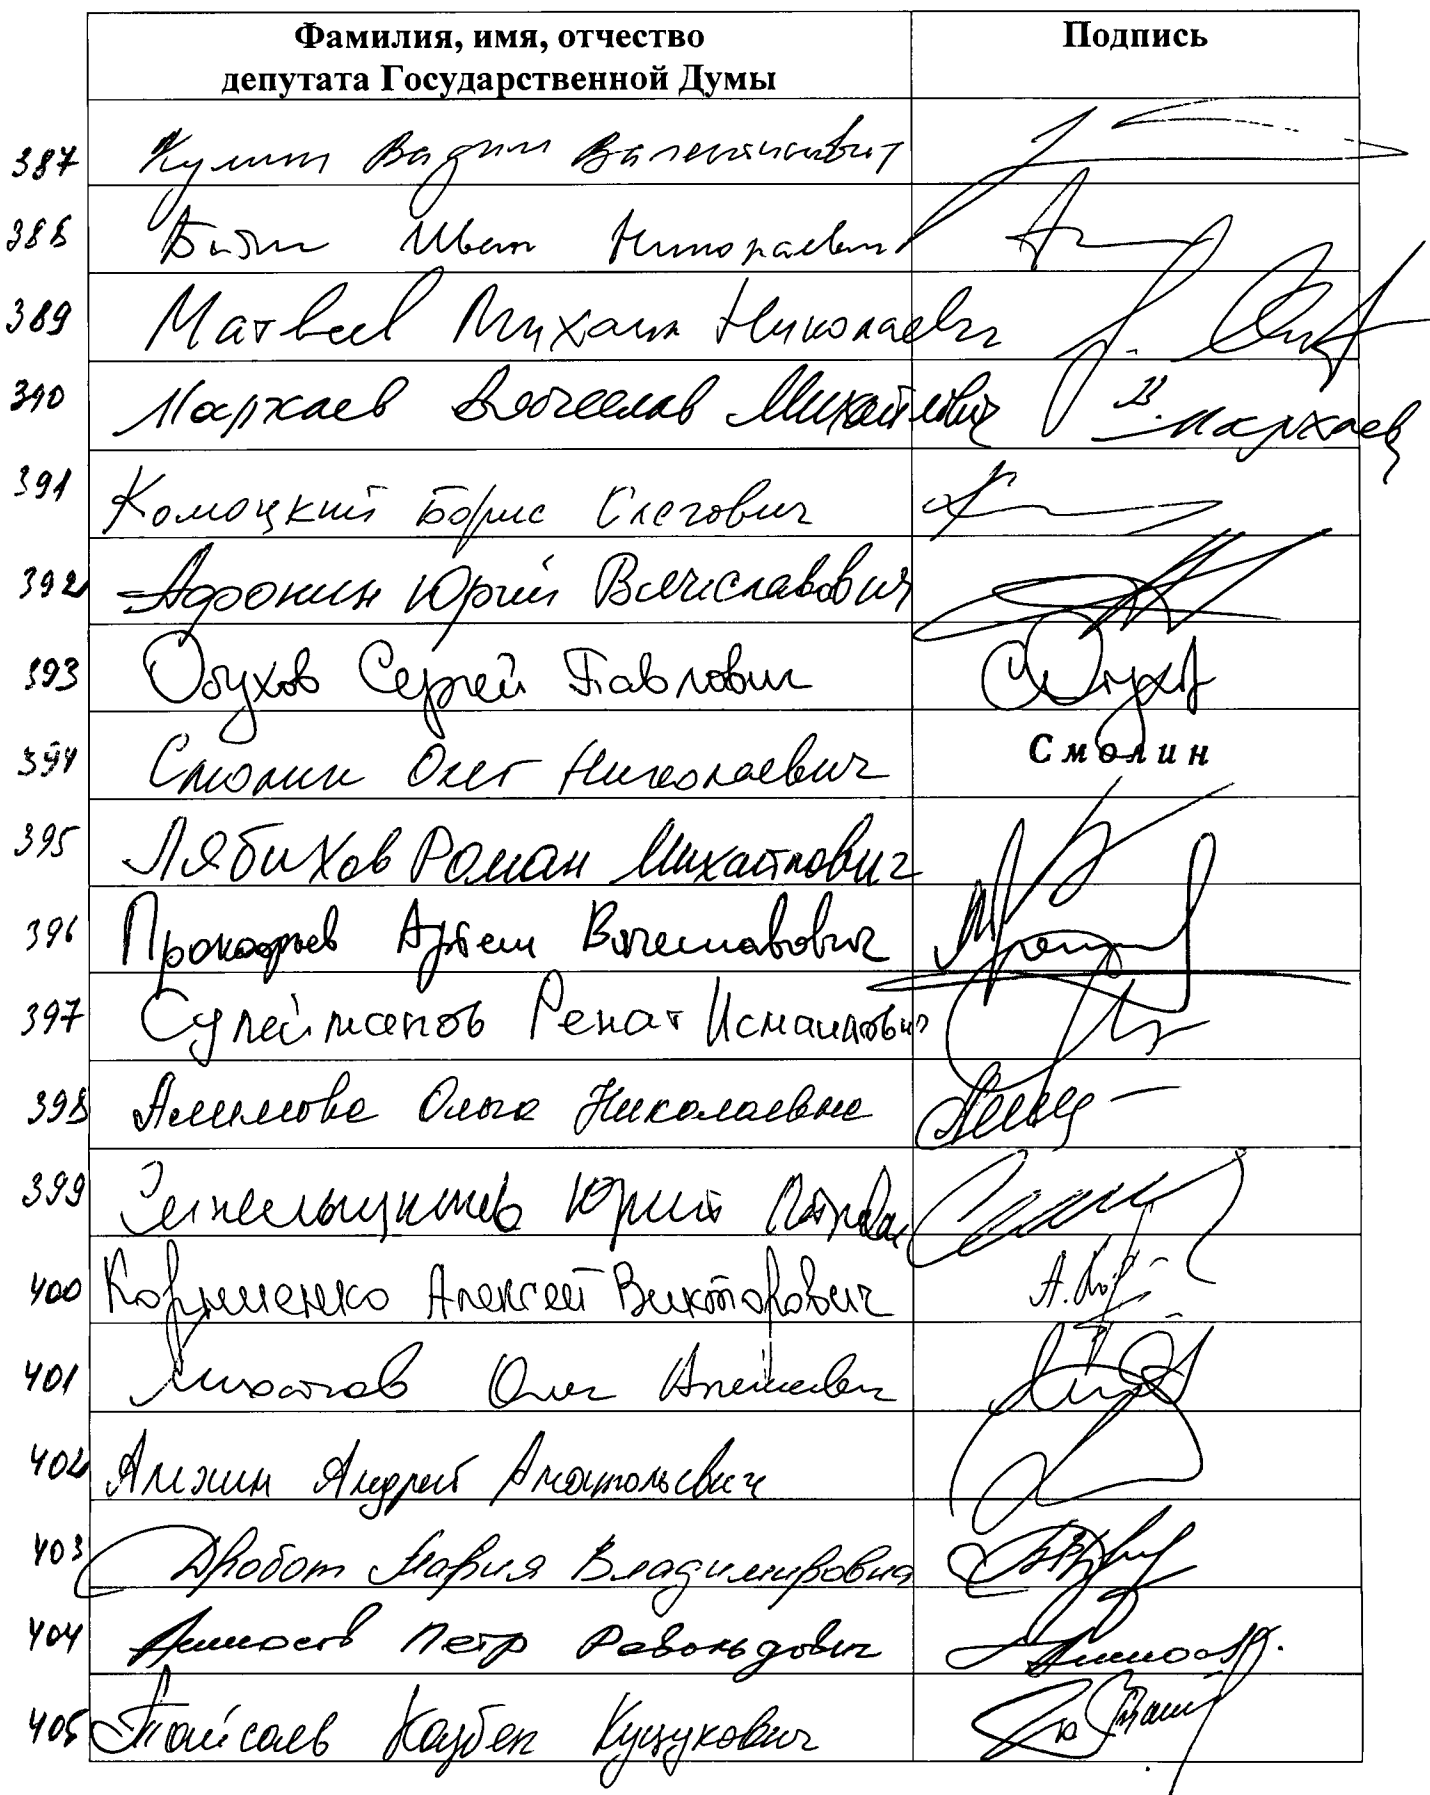 Фамилия, имя, отчество Подпись
депутата Государственной Думы
387 Кумин Вадим Валентинович
388 Бабич Иван Николаевич
389 Матвеев Михаил Николаевич
390 Мархаев Вячеслав Михайлович В. Мархаев
391 Комоцкий Борис Олегович
392 Афонин Юрий Вячеславович
393 Обухов Сергей Павлович С Обухов
394 Смолин Олег Николаевич Смолин
395 Лябихов Роман Михайлович
396 Прокофьев Артем Вячеславович
397 Сулейманов Ренат Исмаилович
398 Алимова Ольга Николаевна
399 Синельщиков Юрий Петрович
400 Корниенко Алексей Викторович
401 Михайлов Олег Алексеевич
402 Алехин Андрей Анатольевич
403 Дробот Мария Владимировна
404 Аммосов Петр Револьдович Аммосов
405 Тайсаев Казбек Куцукович